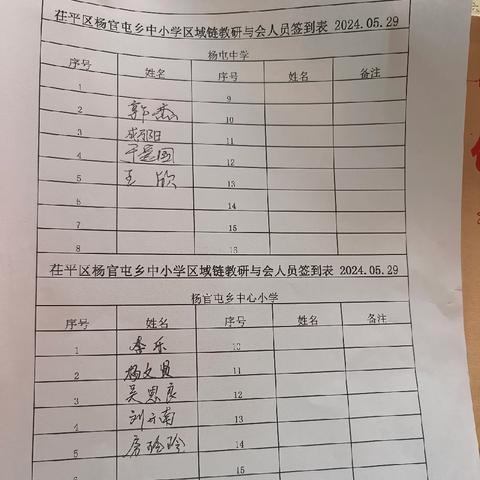 茌平区杨官屯乡中小学区域链教研与会人员签到表 2024.05.29
杨屯中学
序号 姓名 序号 姓名 备注
1 9
2 郭杰 10
3 11
4 于是国 12
5 王欣 13
6 14
7 15
8 16
茌平区杨官屯乡中小学区域链教研与会人员签到表 2024.05.29
杨官屯乡中心小学
序号 姓名 序号 姓名 备注
1 李乐 10
2 杨文贤 11
3 吴思良 12
4 刘云南 13
5 房玲玲 14
15